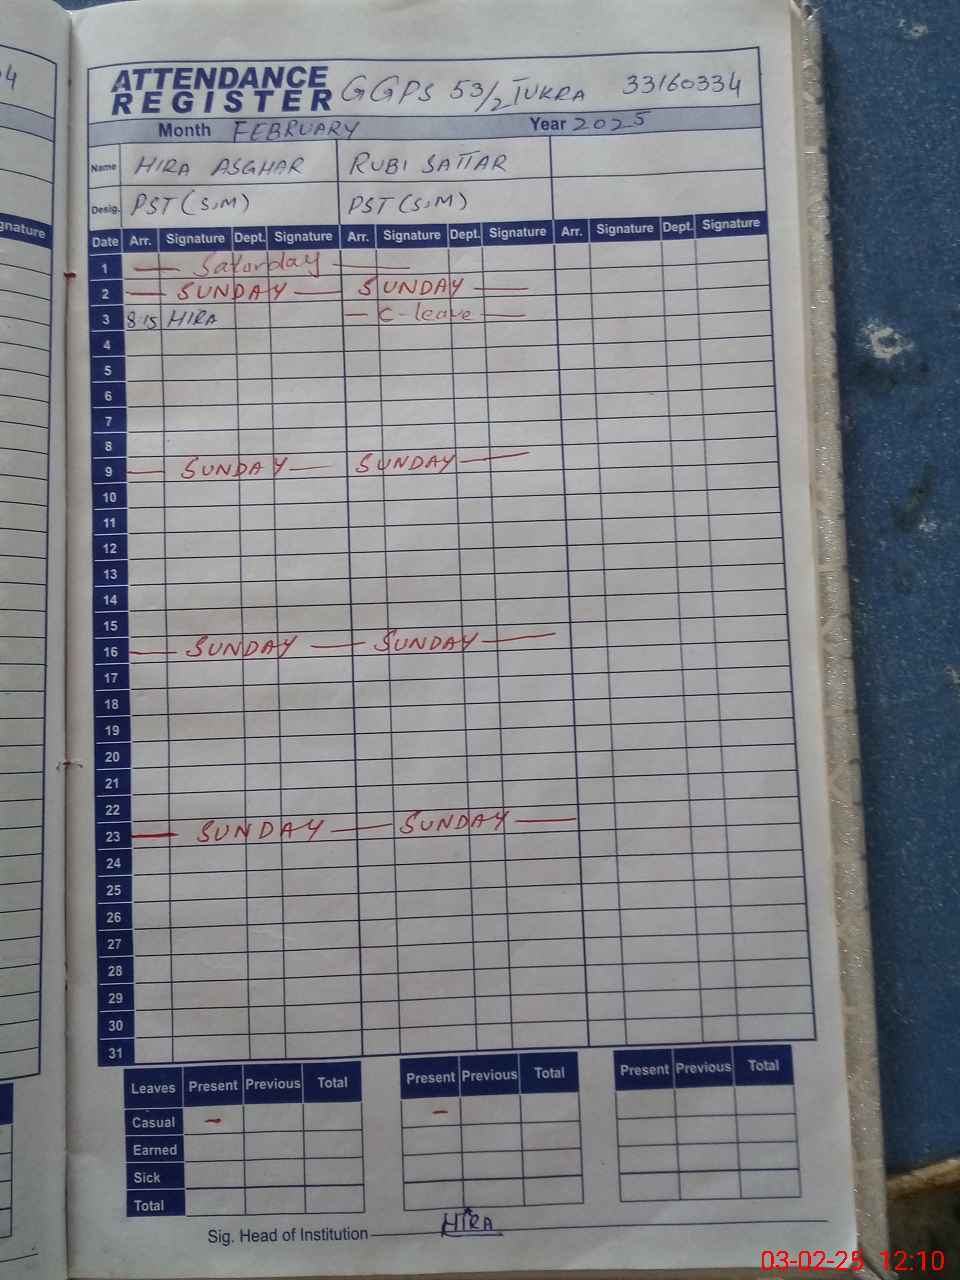 ATTENDANCE REGISTER GGPS 53/2 TUKRA 33160334
Month FEBRUARY Year 2025
Name HIRA ASGHAR RUBI SATTAR
Desig. PST(S,M) PST(S,M)
Date Arr. Signature Dept. Signature Arr. Signature Dept. Signature Arr. Signature Dept. Signature
1 — Saturday —
2 — SUNDAY — SUNDAY —
3 8:15 HIRA — C-leave —
4
5
6
7
8
9 — SUNDAY — SUNDAY —
10
11
12
13
14
15
16 — SUNDAY — SUNDAY —
17
18
19
20
21
22
23 — SUNDAY — SUNDAY —
24
25
26
27
28
29
30
31
Leaves Present Previous Total Present Previous Total Present Previous Total
Casual - -
Earned
Sick
Total
Sig. Head of Institution HIRA
03-02-25 12:10